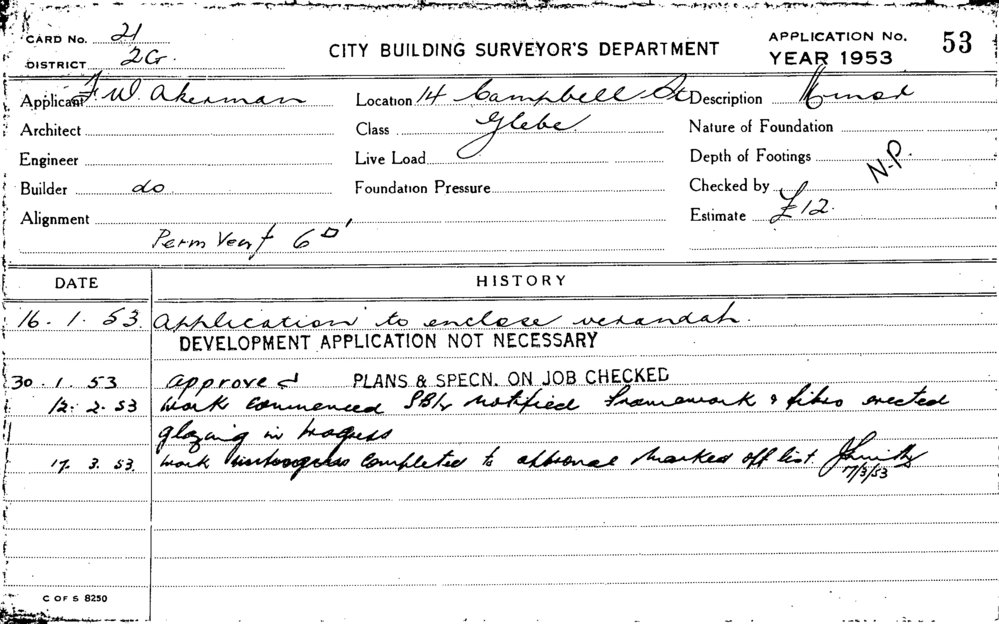 CARD No. 21
DISTRICT 2G.
CITY BUILDING SURVEYOR'S DEPARTMENT
APPLICATION No. 53
YEAR 1953
Applicant F. W. Akerman
Location 14 Campbell St
Description Minor
Architect
Class Glebe
Nature of Foundation
Engineer
Live Load
Depth of Footings
N.P.
Builder do
Foundation Pressure
Checked by
Alignment
Estimate £12.
Perm Vent 6□'
DATE
HISTORY
16. 1. 53. Application to enclose verandah.
DEVELOPMENT APPLICATION NOT NECESSARY
30. 1. 53 approved PLANS & SPECN. ON JOB CHECKED
12. 2. 53 Work commenced notified framework & fibro erected
glazing in progress
17. 3. 53. Work completed to approval marked off list
7/3/53
C OF S 8250